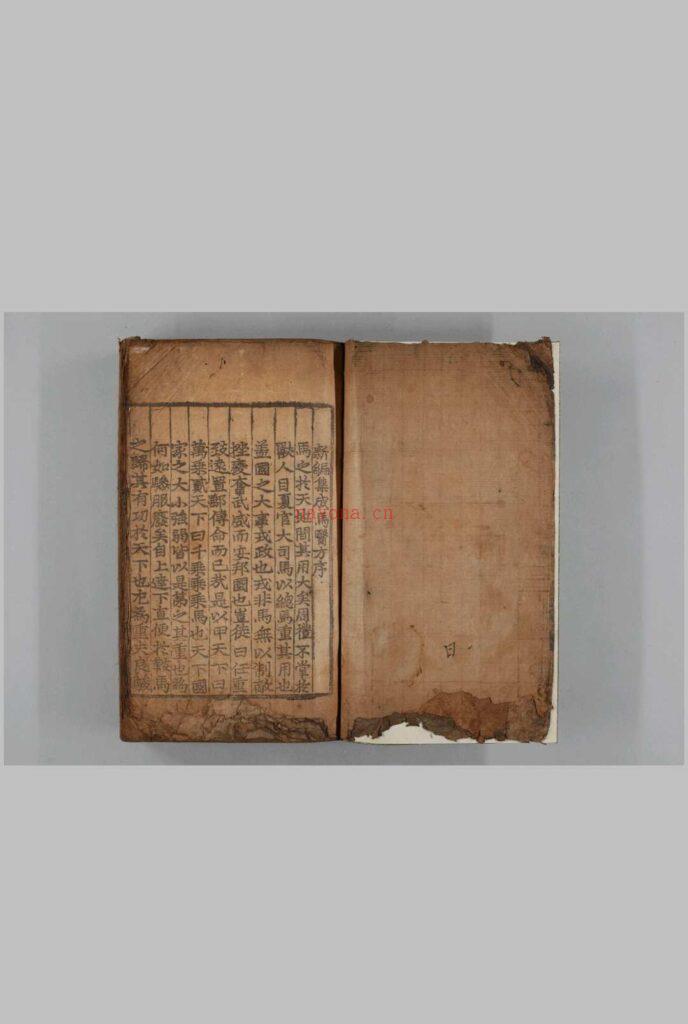 新編集成馬醫方序
馬之於天地間其用大矣周禮不掌於
獸人目夏官大司馬以總焉重其用也
盖國之大事戎政也戎非馬無以制敵
挫凌奮武威而安邦國也豈徒曰任重
致遠置郵傳命而已哉是以甲天下曰
萬乘貳天下曰千乘乘乘馬也天下國
家之大小強弱皆以是篆之其重也為
何如騐服廢矣自上達下直便於鞍馬
之歸其有功於天下也尤為重夫良
曰
nayona.cn